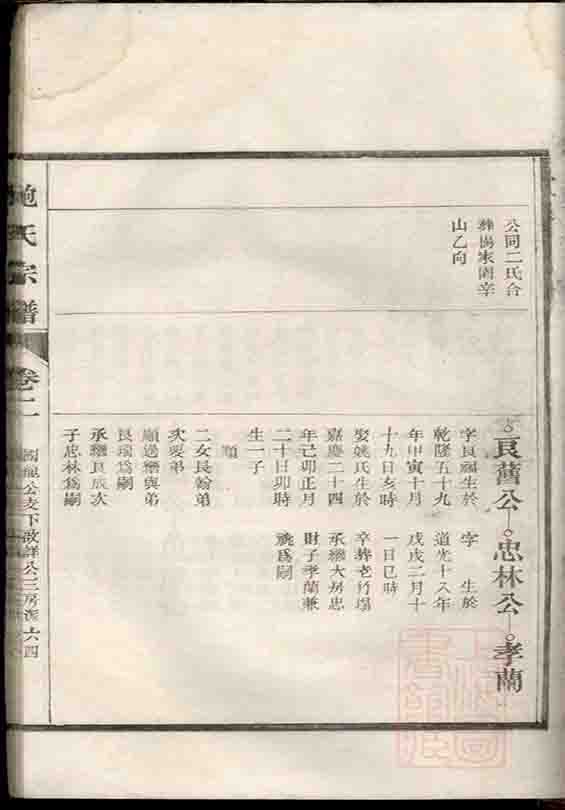 公同二氏合
葬楊家園辛
山乙向
良舊公 忠林公 孝蘭
字良福生於
乾隆五十九
年甲寅十月
十九日亥時
娶姚氏生於
嘉慶二十四
年己卯正月
二十日卯時
生一子
順
二女長翰弟
次要弟
願過繼與弟
良瑞爲嗣
承繼良成次
子忠林爲嗣
字 生於
道光十八年
戊戌二月十
一日巳時
卒葬老竹塢
承繼大房忠
財子孝蘭兼
祧爲嗣
鮑氏宗譜
卷二
國龍公支下啟祥公三房派 六四